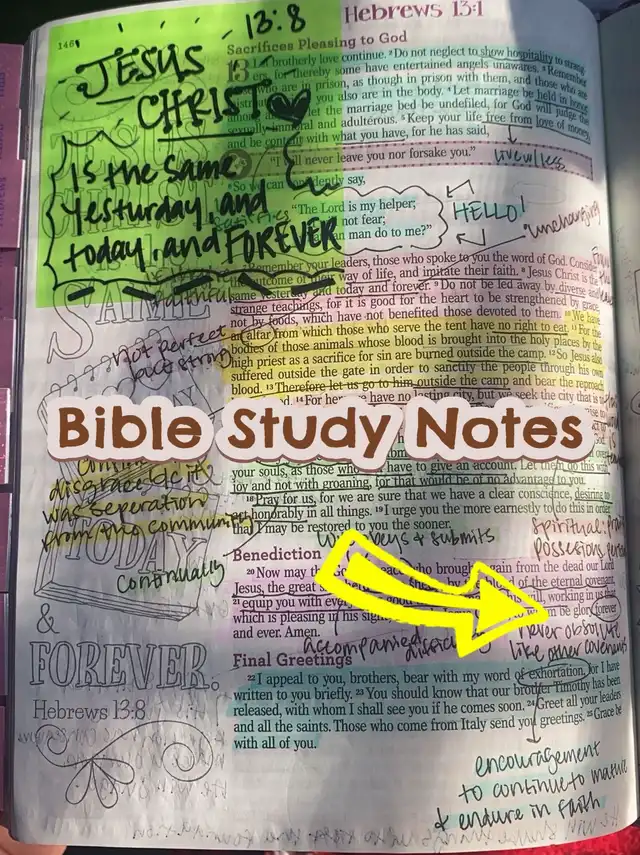 146
13:8
Hebrews 13:1
JESUS
CHRIST
Is the same
Yesturday, and
today, and FOREVER
Sacrifices Pleasing to God
13
brotherly love continue. 2Do not neglect to show hospitality to
thereby some have entertained angels unawares. 3Remember
prison, as though in prison with them, and those who are
you also are in the body. 4Let marriage be held in honor
let the marriage bed be undefiled, for God will judge the
and adulterous. 5Keep your life free from love of money,
and be content with what you have, for he has said,
never leave you nor forsake you."
live w/less
6So we can confidently say,
"The Lord is my helper;
not fear;
man do to me?"
HELLO!
"unchanging"
7Remember your leaders, those who spoke to you the word of God. Consider
the outcome of their way of life, and imitate their faith. 8Jesus Christ is the
same yesterday and today and forever. 9Do not be led away by diverse and
strange teachings, for it is good for the heart to be strengthened by grace,
not by foods, which have not benefited those devoted to them. 10We have
an altar from which those who serve the tent have no right to eat. 11For the
bodies of those animals whose blood is brought into the holy places by the
high priest as a sacrifice for sin are burned outside the camp. 12So Jesus also
suffered outside the gate in order to sanctify the people through his own
blood. 13Therefore let us go to him outside the camp and bear the reproach
14For here we have no lasting city, but we seek the city that is
faithful
SAME
not perfect
but strong
Bible Study Notes
your souls, as those who have to give an account. Let them do this with
joy and not with groaning, for that would be of no advantage to you.
18Pray for us, for we are sure that we have a clear conscience, desiring to
act honorably in all things. 19I urge you the more earnestly to do this in order
that I may be restored to you the sooner.
disgrace
was seperation
from the community
TODAY
continually
obeys & submits
Spiritual:
possesions
Benediction
20Now may the God of peace who brought again from the dead our Lord
Jesus, the great shepherd by the blood of the eternal covenant,
21equip you with working in us that
which is pleasing in his sight be glory forever
and ever. Amen.
accompanied
never obsolute
like other covenants
Final Greetings
22I appeal to you, brothers, bear with my word of exhortation, for I have
written to you briefly. 23You should know that our brother Timothy has been
released, with whom I shall see you if he comes soon. 24Greet all your leaders
and all the saints. Those who come from Italy send you greetings. 25Grace be
with all of you.
&
FOREVER.
Hebrews 13:8
encouragement
to continue to mature
& endure in faith